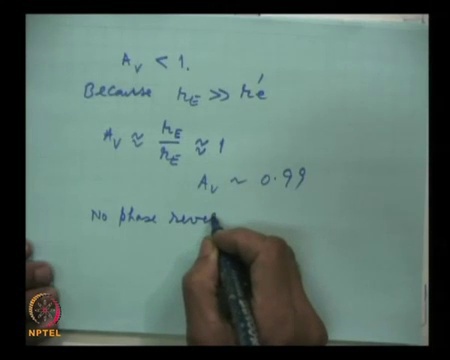 A_V < 1.
Because r_E >> r'e
A_V ≈ r_E / r_E ≈ 1
A_V ~ 0.99
No phase reve
NPTEL